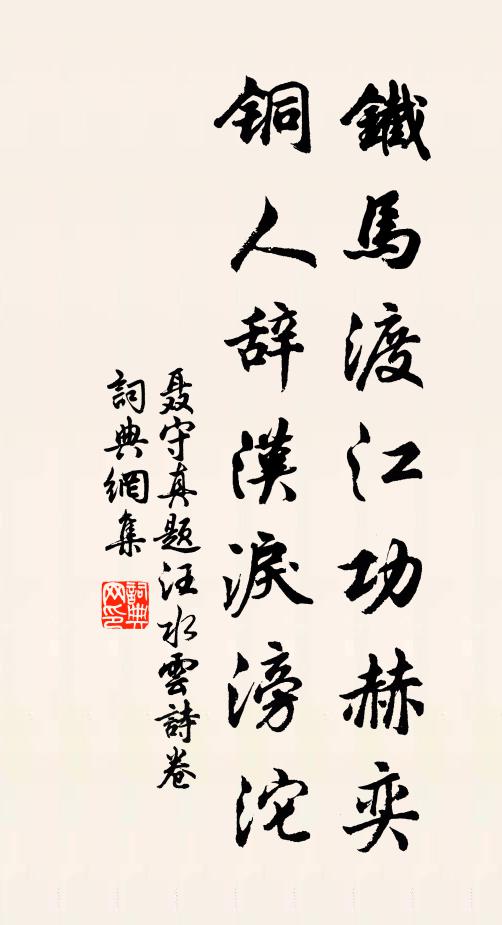 鐵馬渡江功赫奕
铜人辞漢淚滂沱
聂守真题汪水雲詩卷
詞典網集
詞典网印